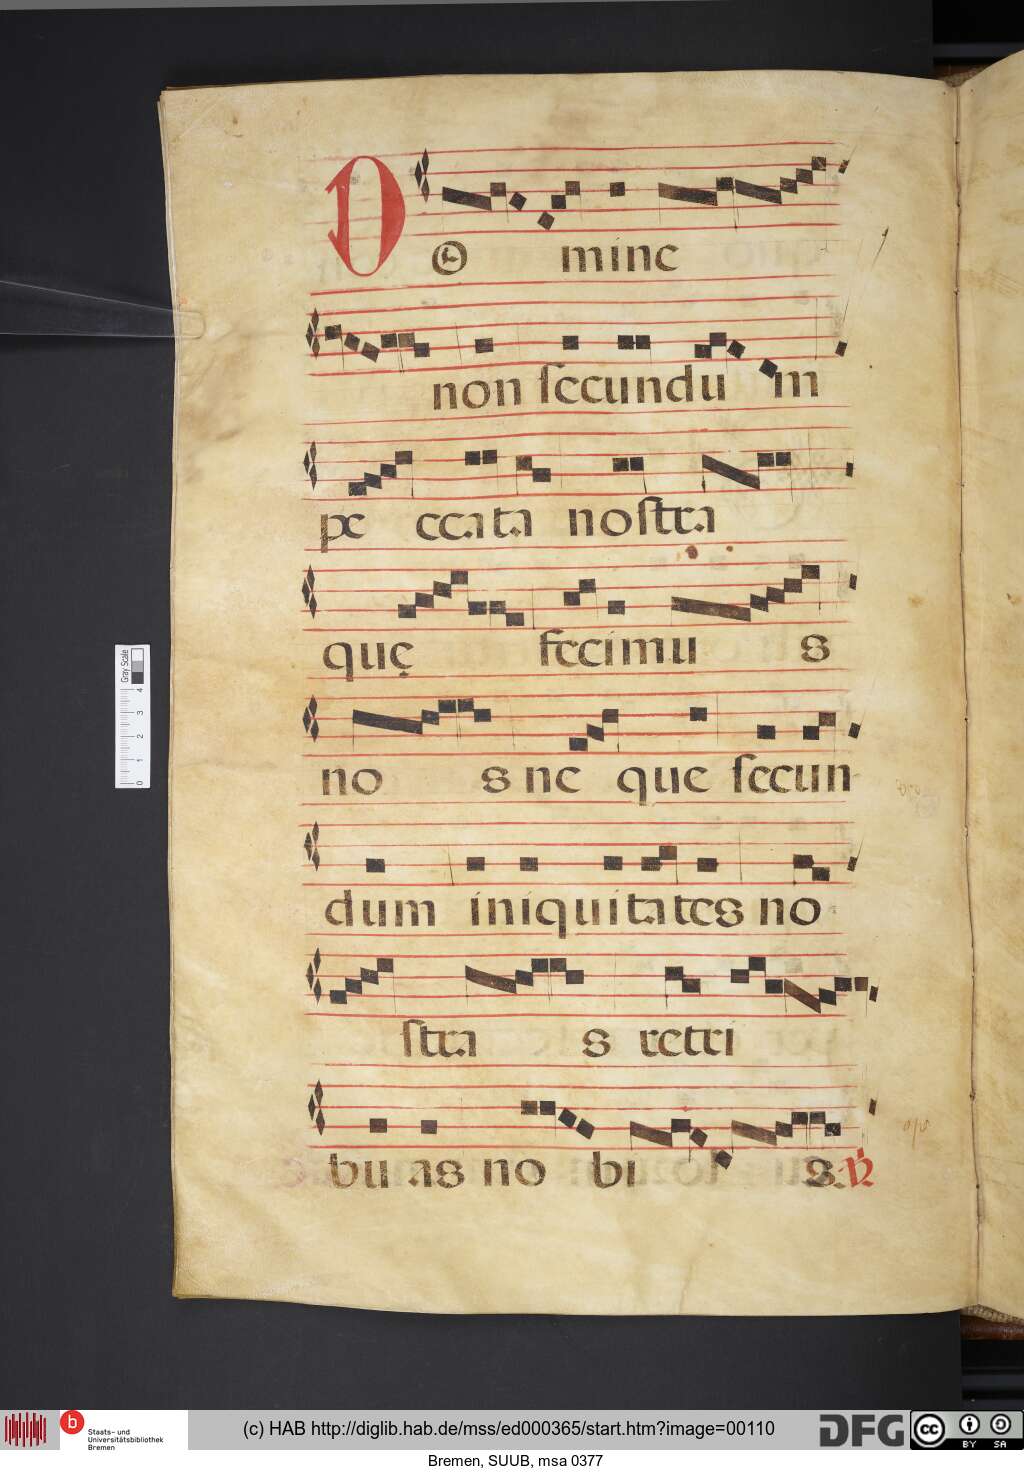 DO mine
non secundu m
pe ccata nostra
quę fecimu s
no s ne que secun
dum iniquitates no
stra s retri
buas no bi s. ℟
Gray Scale
4 3 2 1 0
b
Staats- und
Universitätsbibliothek
Bremen
(c) HAB http://diglib.hab.de/mss/ed000365/start.htm?image=00110
DFG
cc BY SA
Bremen, SUUB, msa 0377